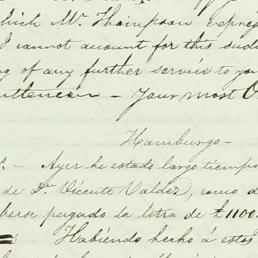 which Mr. Thompson expres
I cannot account for this sud
g of any further service to yo
Gentlemen – Your most O
Hamburgo –
– Ayer he estado largo tiempo
de Dn. Vicente Valdez, como d
berse pagado la letra de £1100
Habiendo hecho á estos